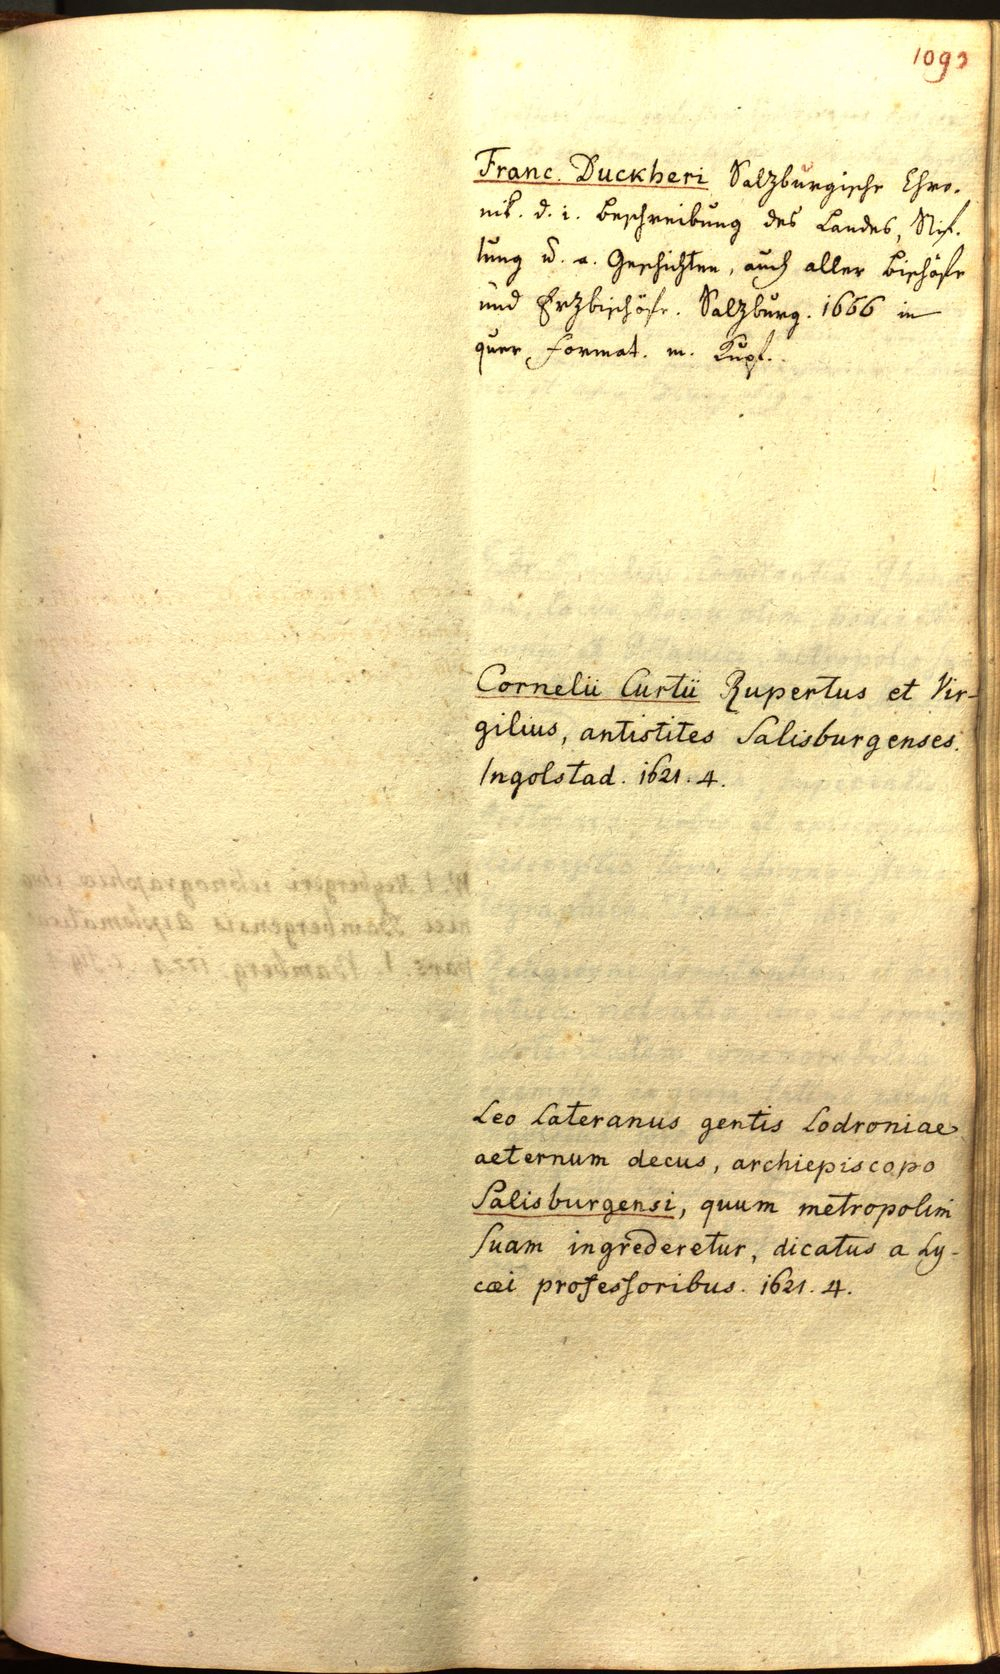 1093
Franc. Duckheri Salzburgische Chro-
nik. d. i. Beschreibung des Landes, Stif-
tung u. a. Geschichten, auch aller Bischöfe
und Erzbischöfe. Salzburg. 1666 in
quer Format. m. Kupf.
Cornelii Curtii Rupertus et Vir-
gilius, antistites Salisburgenses.
Ingolstad. 1621. 4.
Leo Lateranus gentis Lodroniae
aeternum decus, archiepiscopo
Salisburgensi, quum metropolim
suam ingrederetur, dicatus a Ly-
cæi professoribus. 1621. 4.